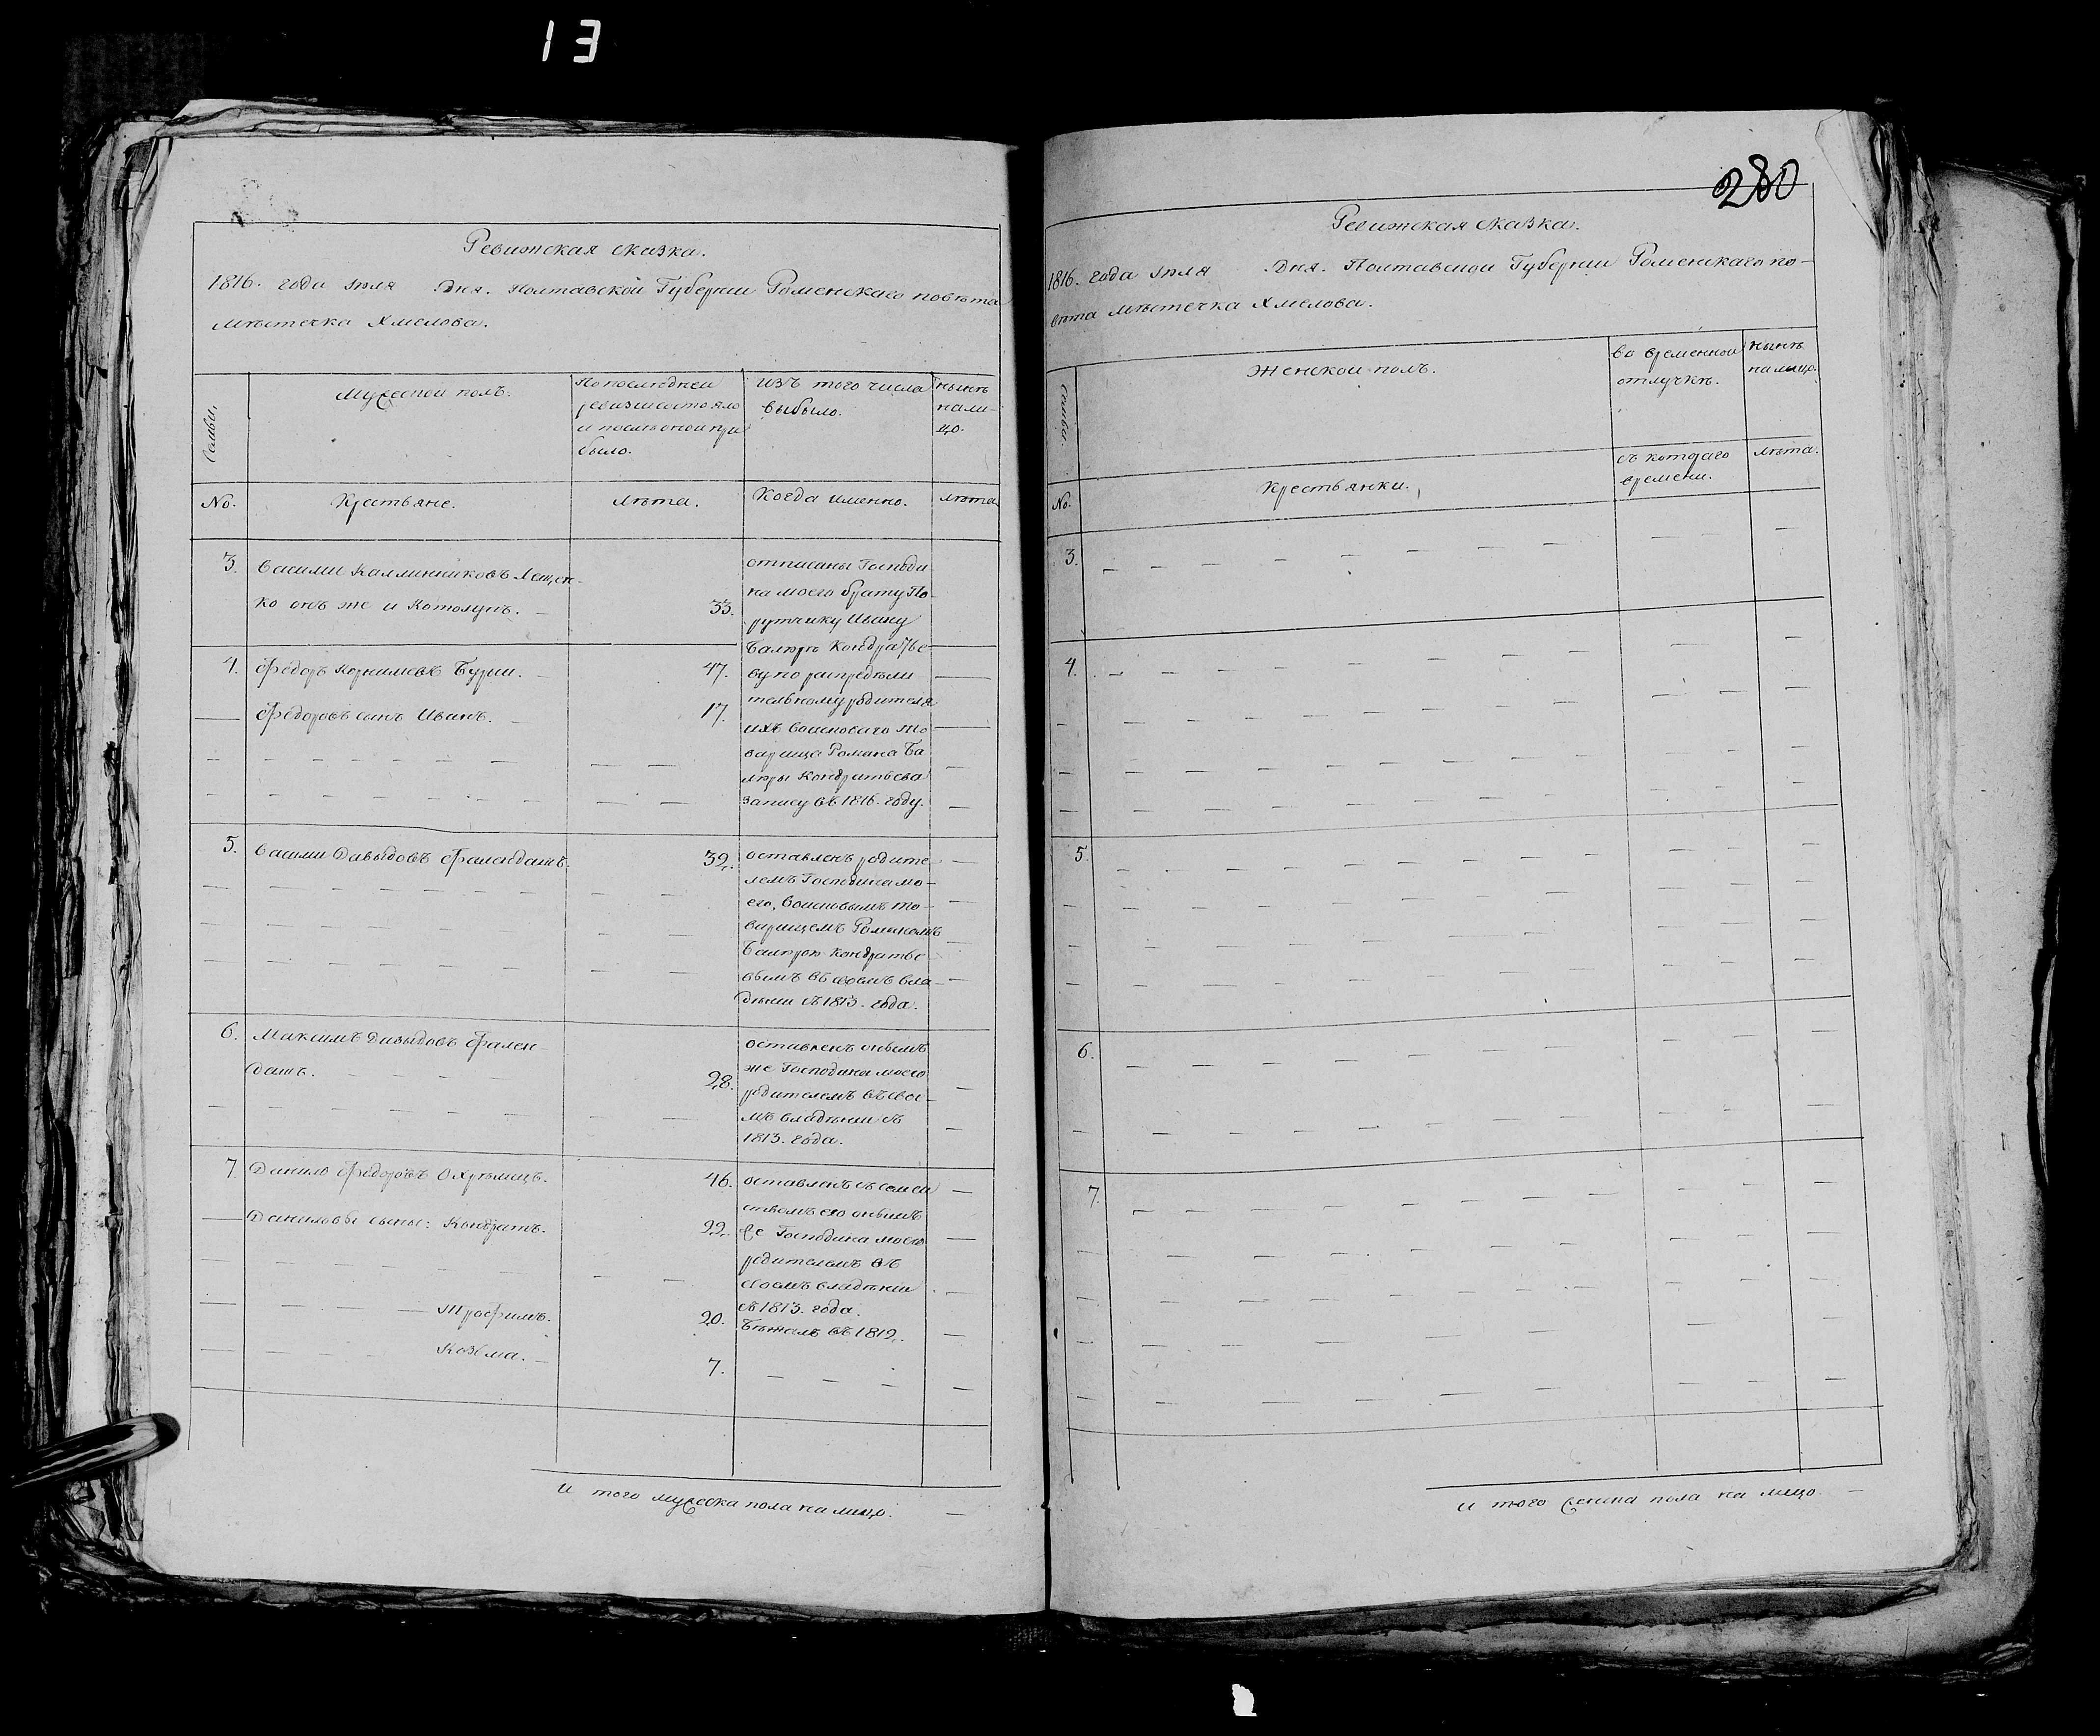 13
280
Ревижская сказка.
1816. года Іюля дня. Полтавской Губерніи Роменскаго повѣта
мѣстечка Хмелова.
Семьи.
Мужеской полъ.
По последней
ревизіи состояло
и после оной при
было.
изъ того числа
выбыло.
нынѣ
нали-
цо.
No.
Крестьяне.
лѣта.
Когда именно.
лѣта
3.
Василии Калинниковъ Лещен-
ко онъ же и
33.
отписаны Господи
на моего брату По-
рутчику Ивану
Балюрѣ Кондратье
ву по распредѣли
тельному родителя
ихъ Воисковаго то
варища Романа Ба
люры Кондратьева
запису въ 1816. году.
4.
Федоръ Корнилиевъ
47.
Федоровъ сынъ Иванъ.
17.
5.
Василии Давыдовъ Фалендашъ.
32.
оставленъ родите
лемъ Господина мо-
его, Воисковымъ то-
варищемъ Романомъ
Балюрою Кондратье
вымъ въ своемъ вла-
дѣнии съ 1813. года.
6.
Максимъ Давыдовъ Фален-
дашъ.
28.
оставленъ онымъ
же Господина моего
родителемъ въ свое-
мъ владѣнии съ
1813. года.
7.
Данило Федоровъ Охрѣмецъ.
46.
оставленъ съ семеи
ствомъ его онымъ
же Господина моего
родителемъ въ
своемъ владѣніи
съ 1813. года.
Даниловы сыны: Кондратъ.
22.
Трофимъ.
20.
Бѣжалъ въ 1812.
Козьма.
7.
И того мужеска пола на лицо.
Ревижская сказка.
1816. года Іюля дня. Полтавской Губерніи Роменскаго по-
вѣта мѣстечка Хмелова.
Семьи.
Женской полъ.
во временной
отлучкѣ.
нынѣ
на лицо.
No.
Крестьянки.
съ котораго
времени.
лѣта.
3.
4.
5.
6.
7.
И того женска пола на лицо.